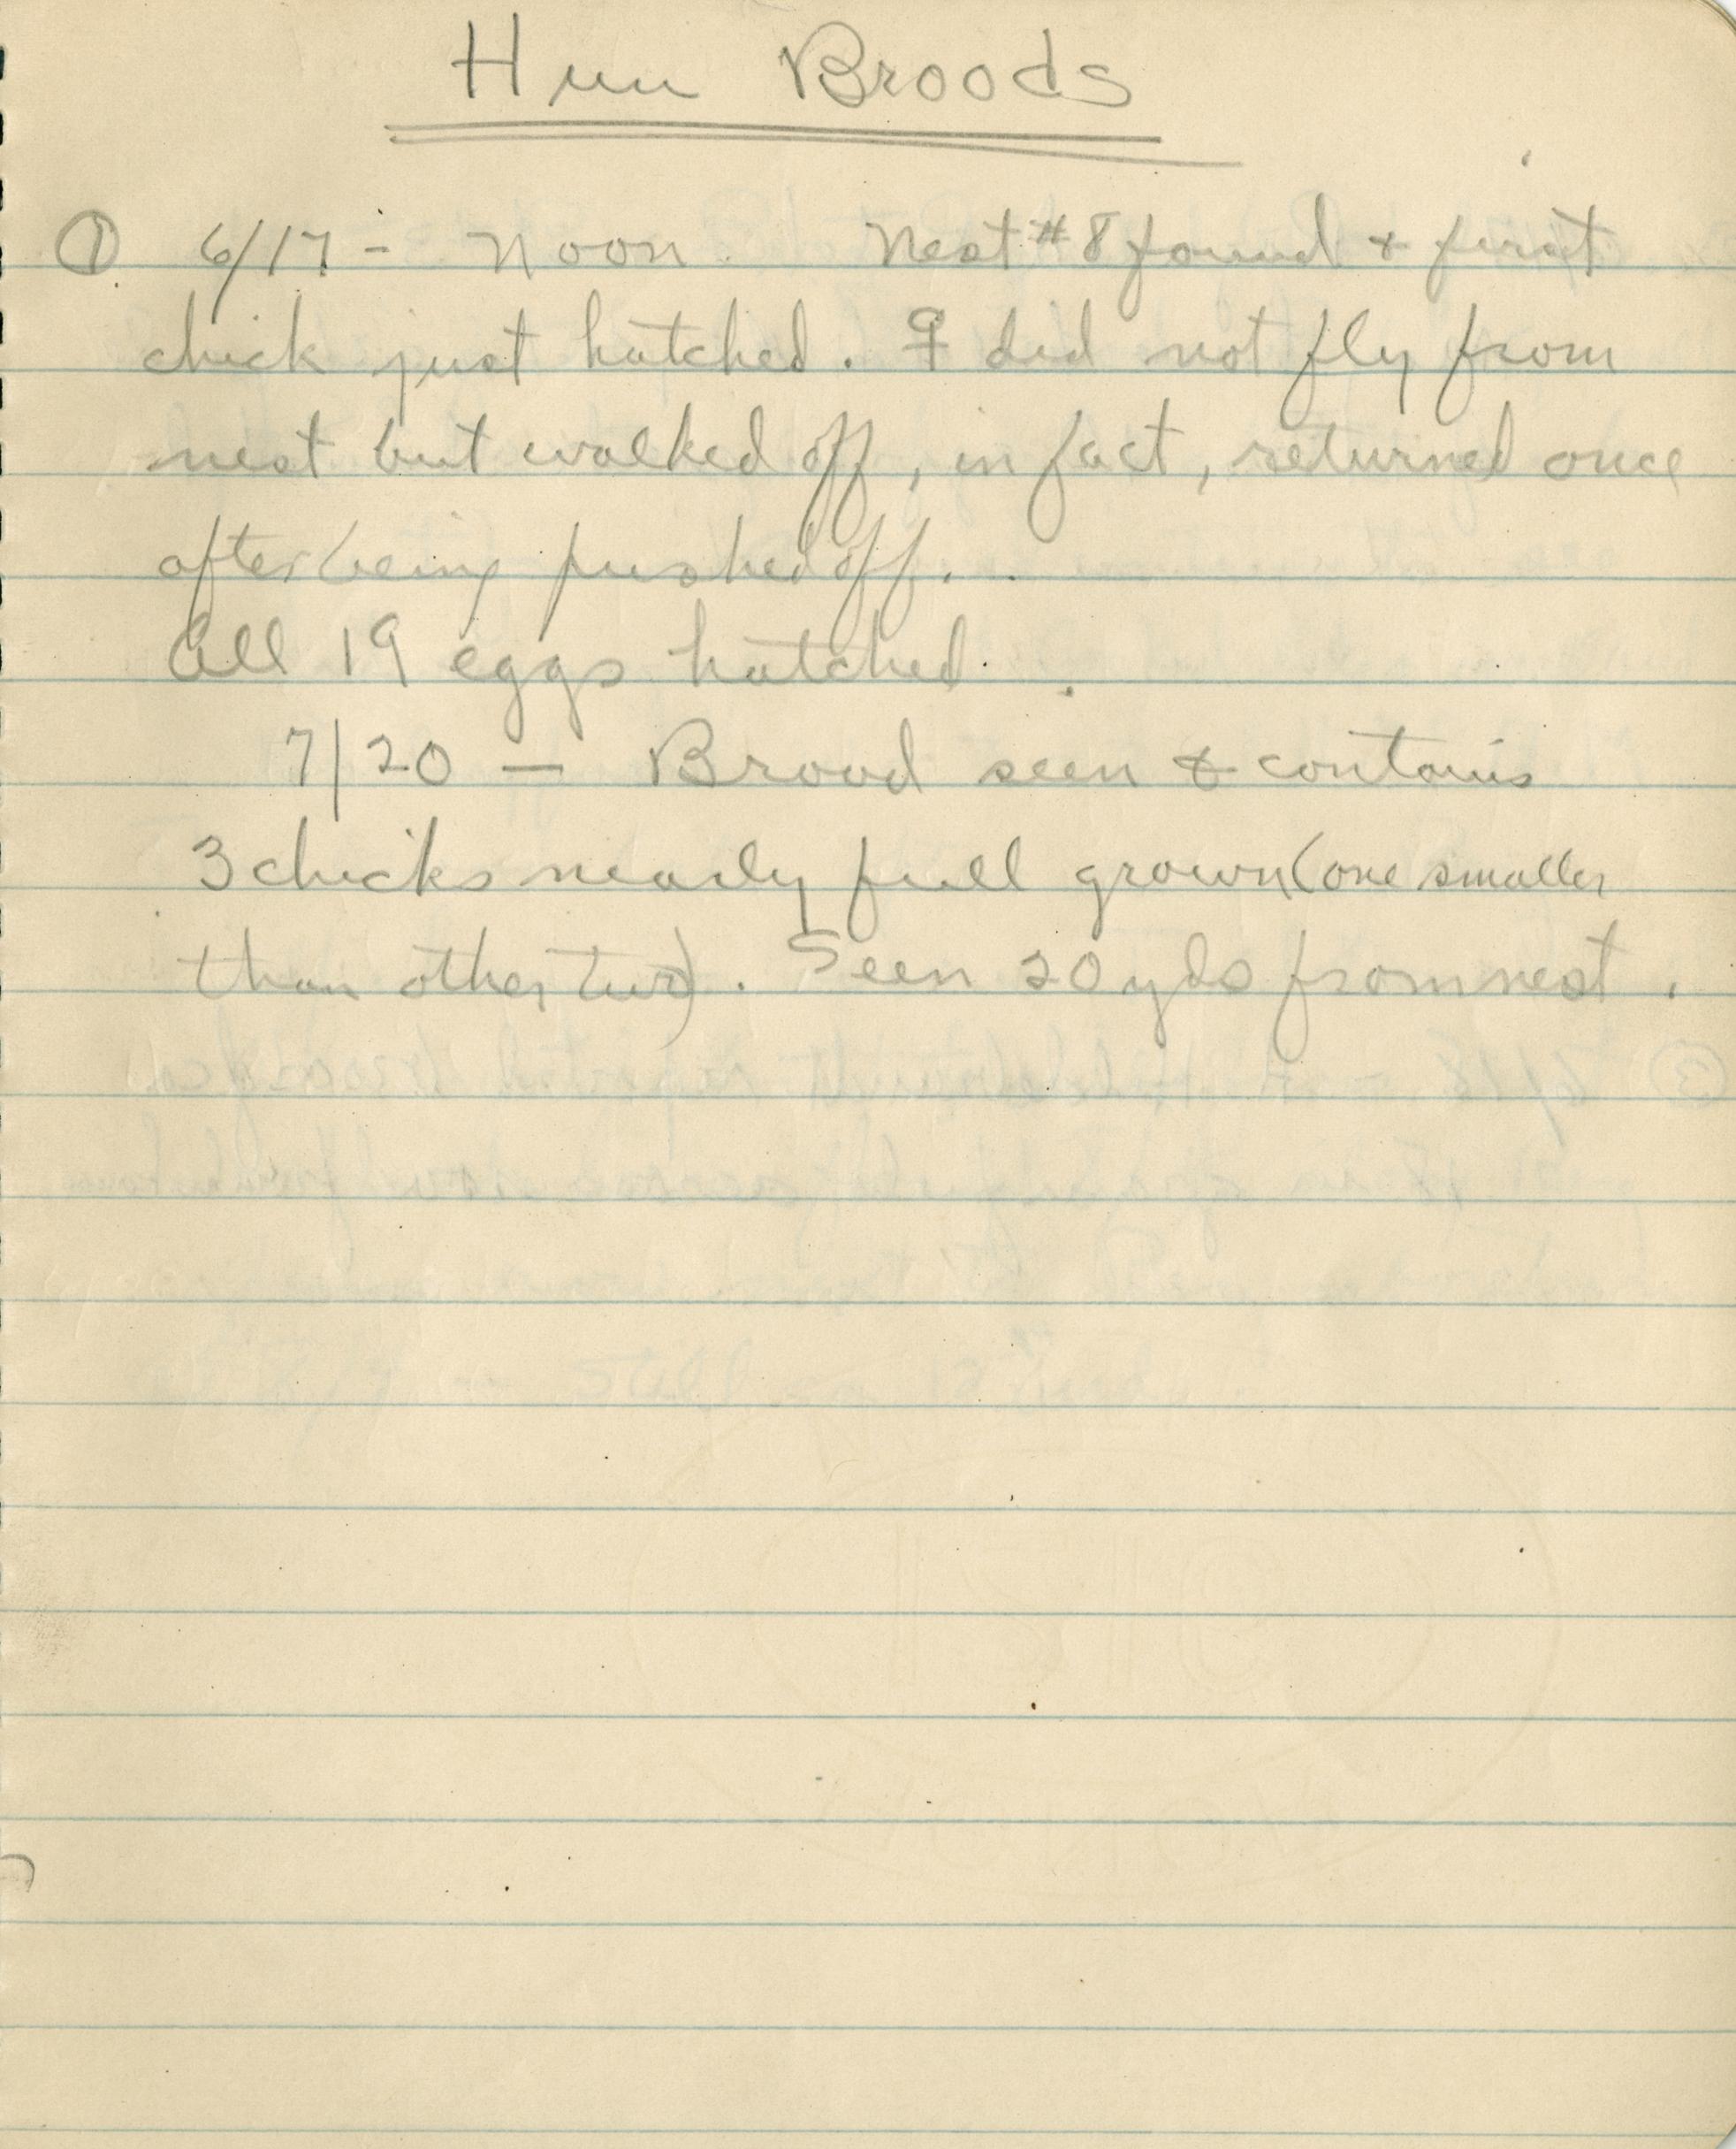 Hun Broods
① 6/17 - Noon. Nest #8 found & first
chick just hatched. ♀ did not fly from
nest but walked off, in fact, returned once
after being pushed off.
All 19 eggs hatched.
7/20 — Brood seen & contains
3 chicks nearly full grown (one smaller
than other two). Seen 20 yds from nest.